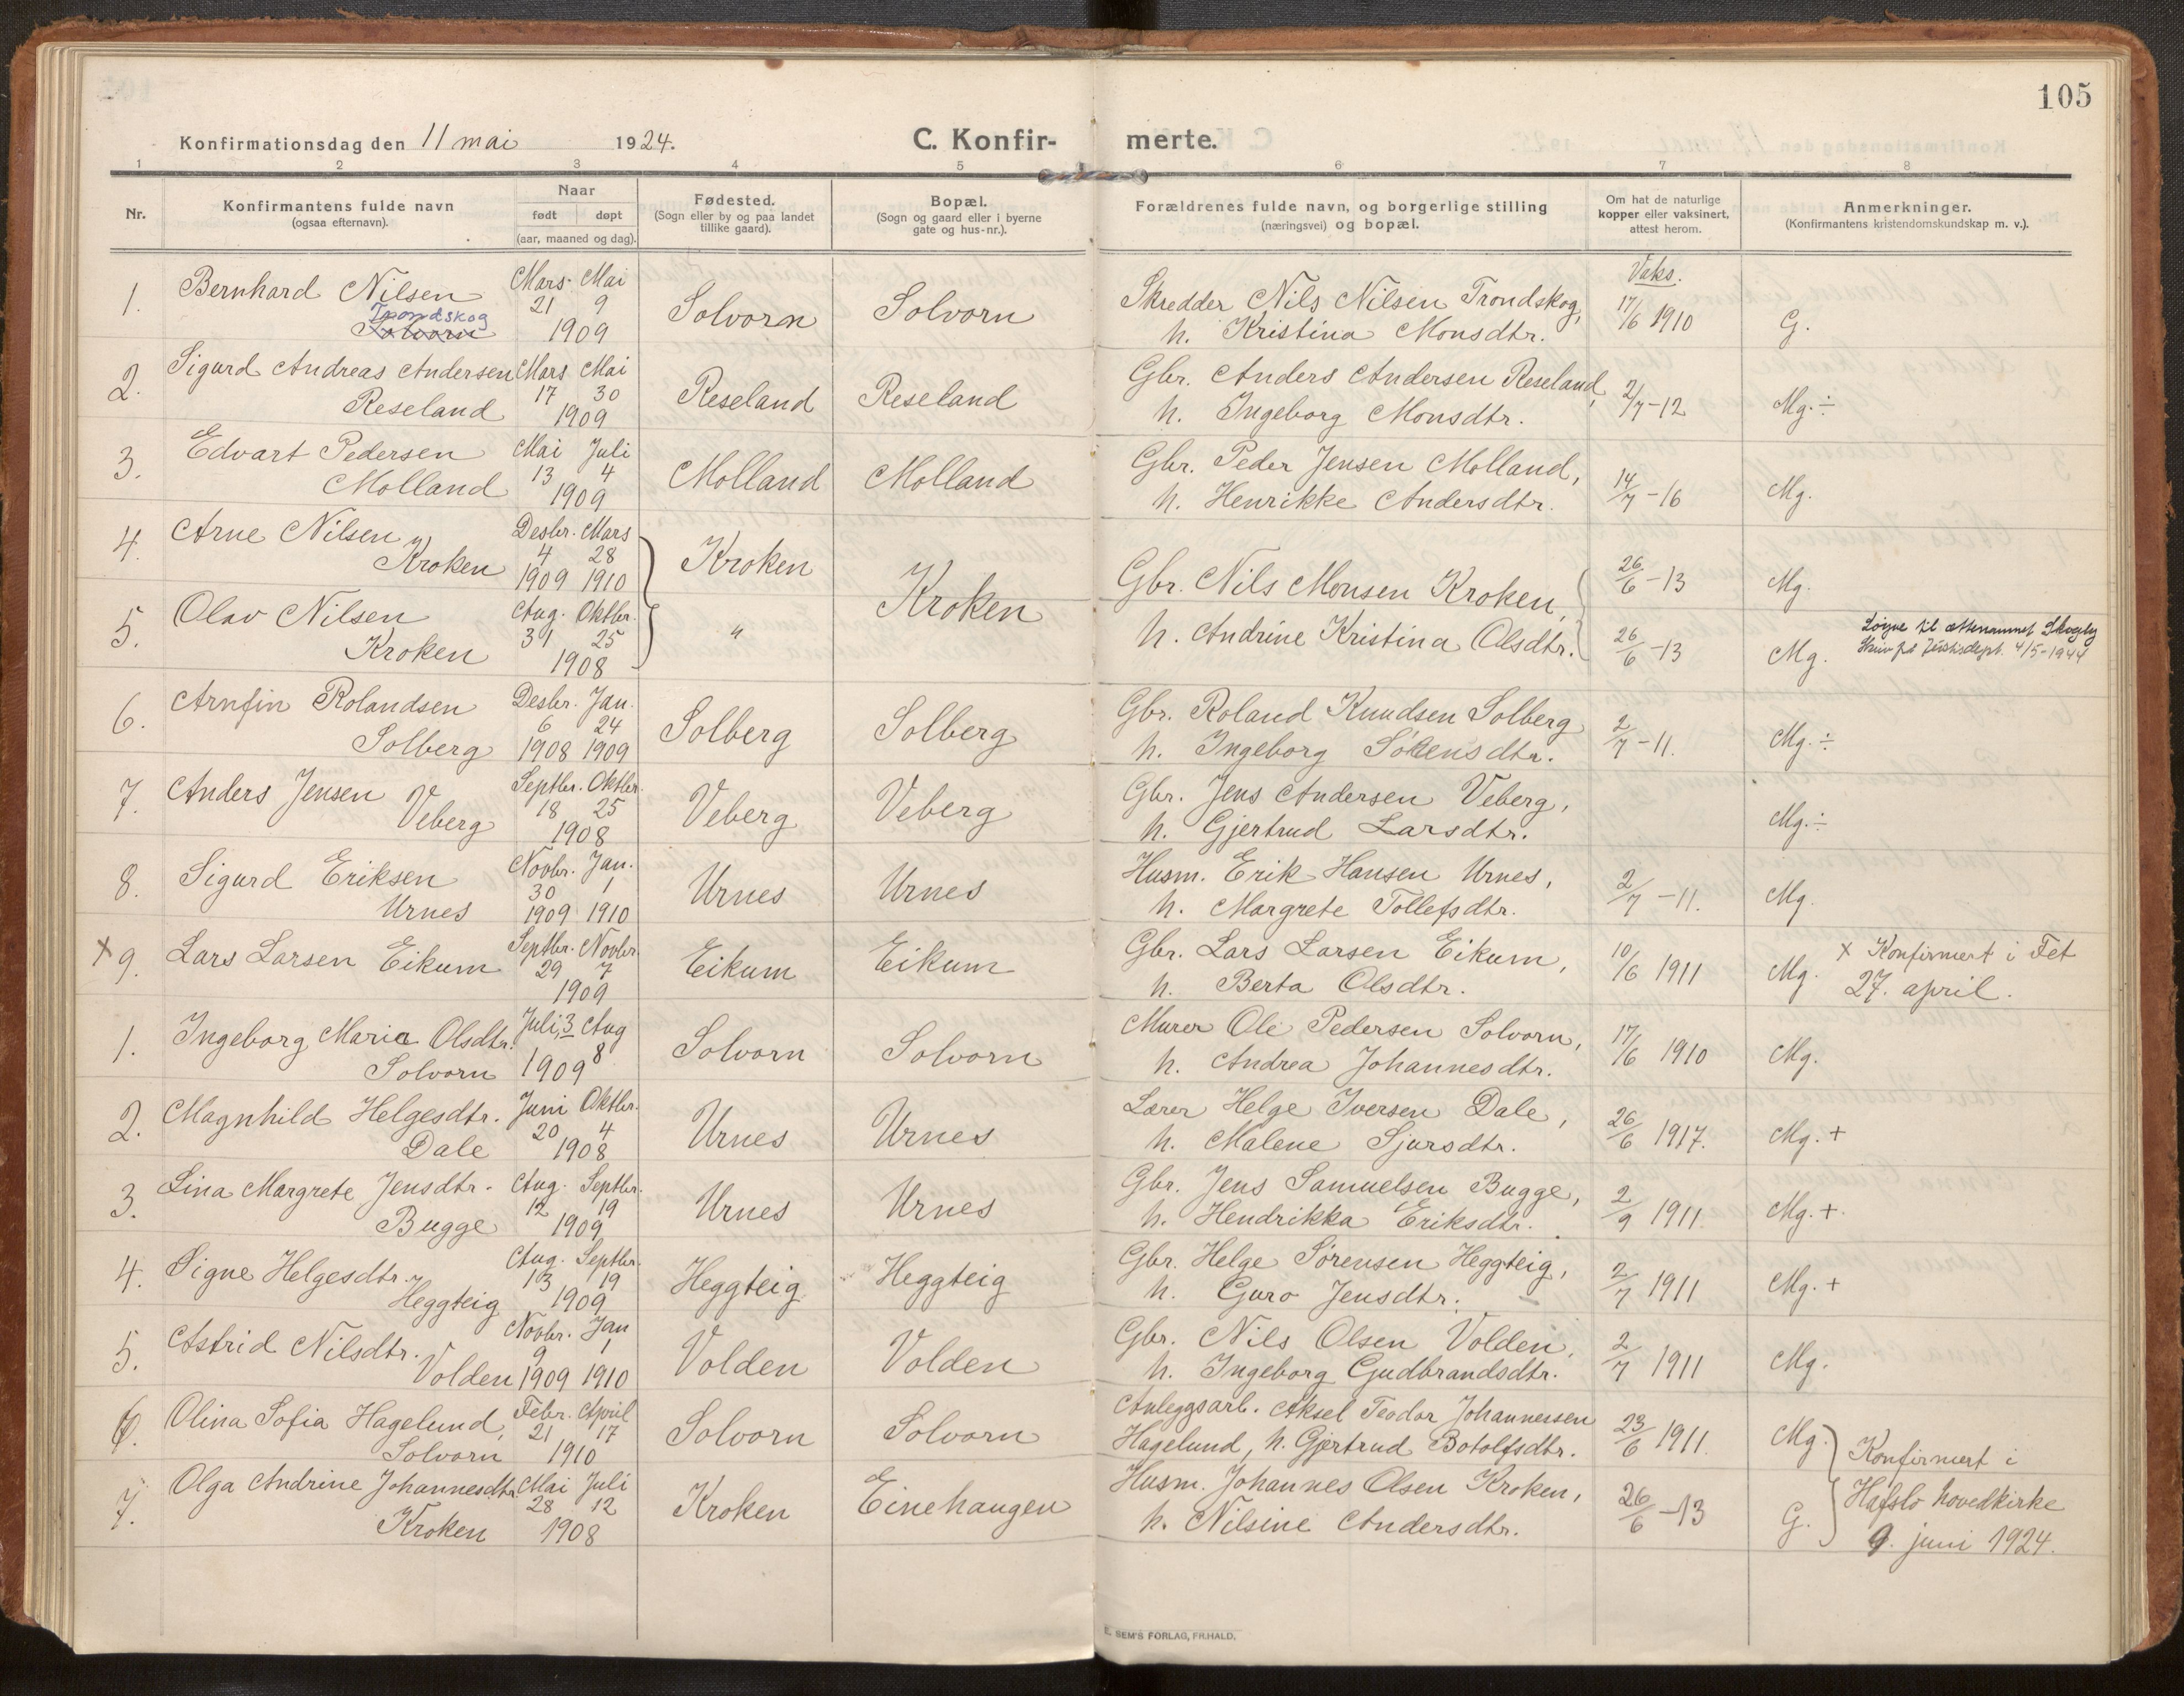 105
Konfirmationsdag den 11 mai 1924.
C. Konfir- merte.
1 2 3 4 5 6 7 8
Nr.
Konfirmantens fulde navn
(ogsaa efternavn).
Naar
født døpt
(aar, maaned og dag).
Fødested.
(Sogn eller by og paa landet
tillike gaard).
Bopæl.
(Sogn og gaard eller i byerne
gate og hus-nr.).
Forældrenes fulde navn, og borgerlige stilling
(næringsvei) og bopæl.
Om hat de naturlige
kopper eller vaksinert,
attest herom.
Anmerkninger.
(Konfirmantens kristendomskundskap m. v.).
1. Bernhard Nilsen Mars Mai Solvorn Solvorn Skredder Nils Nilsen Trondskog, Vaks. 17/6 1910 G.
Trondskog 21 9
Solvorn 1909 h. Kristina Monsdtr.
2. Sigurd Andreas Andersen Mars Mai Reseland Reseland Gbr. Anders Andersen Reseland, 2/7-12 Mg. ÷
Reseland 17 30 1909 h. Ingeborg Monsdtr.
3. Edvart Pedersen Mai Juli Molland Molland Gbr. Peder Jensen Molland, 14/7-16 Mg.
Molland 13 4 1909 h. Henrikke Andersdtr.
4. Arne Nilsen Desbr. Mars Kroken Kroken Gbr. Nils Monsen Kroken, 26/6-13 Mg.
Kroken 4 28 1909 1910
5. Olav Nilsen Aug. Oktbr. " h. Andrine Kristina Olsdtr. 26/6-13 Mg. Løyve til ættenamnet Skogly
Kroken 31 25 1908 Skriv frå Justisdept. 4/5-1944
6. Arnfin Rolandsen Desbr. Jan. Solberg Solberg Gbr. Roland Knudsen Solberg 2/7-11. Mg. ÷
Solberg 6 24 1908 1909 h. Ingeborg Sørensdtr.
7. Anders Jensen Septbr. Oktbr. Veberg Veberg Gbr. Jens Andersen Veberg, Mg. ÷
Veberg 18 25 1908 h. Gjertrud Larsdtr.
8. Sigurd Eriksen Novbr. Jan. Urnes Urnes Husm. Erik Hansen Urnes, 2/7-11. Mg.
Urnes 30 1 1909 1910 h. Margrete Tollefsdtr.
x 9. Lars Larsen Eikum Septbr. Novbr. Eikum Eikum Gbr. Lars Larsen Eikum, 10/6 1911 Mg. x Konfirmert i Fet
29 7 1909 h. Berta Olsdtr. 27. april.
1. Ingeborg Maria Olsdtr. Juli 3 Aug 8 Solvorn Solvorn Murer Ole Pedersen Solvorn, 17/6 1910 Mg.
Solvorn 1909 h. Andrea Johannesdtr.
2. Magnhild Helgesdtr. Juni Oktbr. Urnes Urnes Lærer Helge Iversen Dale, 26/6 1917. Mg. +
Dale 20 4 1908 h. Malene Sjursdtr.
3. Lina Margrete Jensdtr. Aug. Septbr. Urnes Urnes Gbr. Jens Samuelsen Bugge, 2/9 1911. Mg. +.
Bugge 12 19 1909 h. Hendrikka Eriksdtr.
4. Signe Helgesdtr. Aug. Septbr. Heggteig Heggteig Gbr. Helge Sørensen Heggteig, 2/7 1911 Mg. +
Heggteig 13 19 1909 h. Guro Jensdtr.
5. Astrid Nilsdtr. Novbr. Jan Volden Volden Gbr. Nils Olsen Volden, 2/7 1911 Mg.
Volden 9 1 1909 1910 h. Ingeborg Gudbrandsdtr.
6. Olina Sofia Hagelund, Febr. April Solvorn Solvorn Anleggsarb. Aksel Teodor Johannesen 23/6 1911. Mg. Konfirmert i
Solvorn 21 17 1910 Hagelund, h. Gjertrud Botolfsdtr.
7. Olga Andrine Johannesdtr. Mai Juli Kroken Einehaugen Husm. Johannes Olsen Kroken, 26/6-13 G. Hafslo hovedkirke
Kroken 28 12 1908 h. Nilsine Andersdtr. 9. juni 1924.
E. SEM'S FORLAG, FR.HALD.